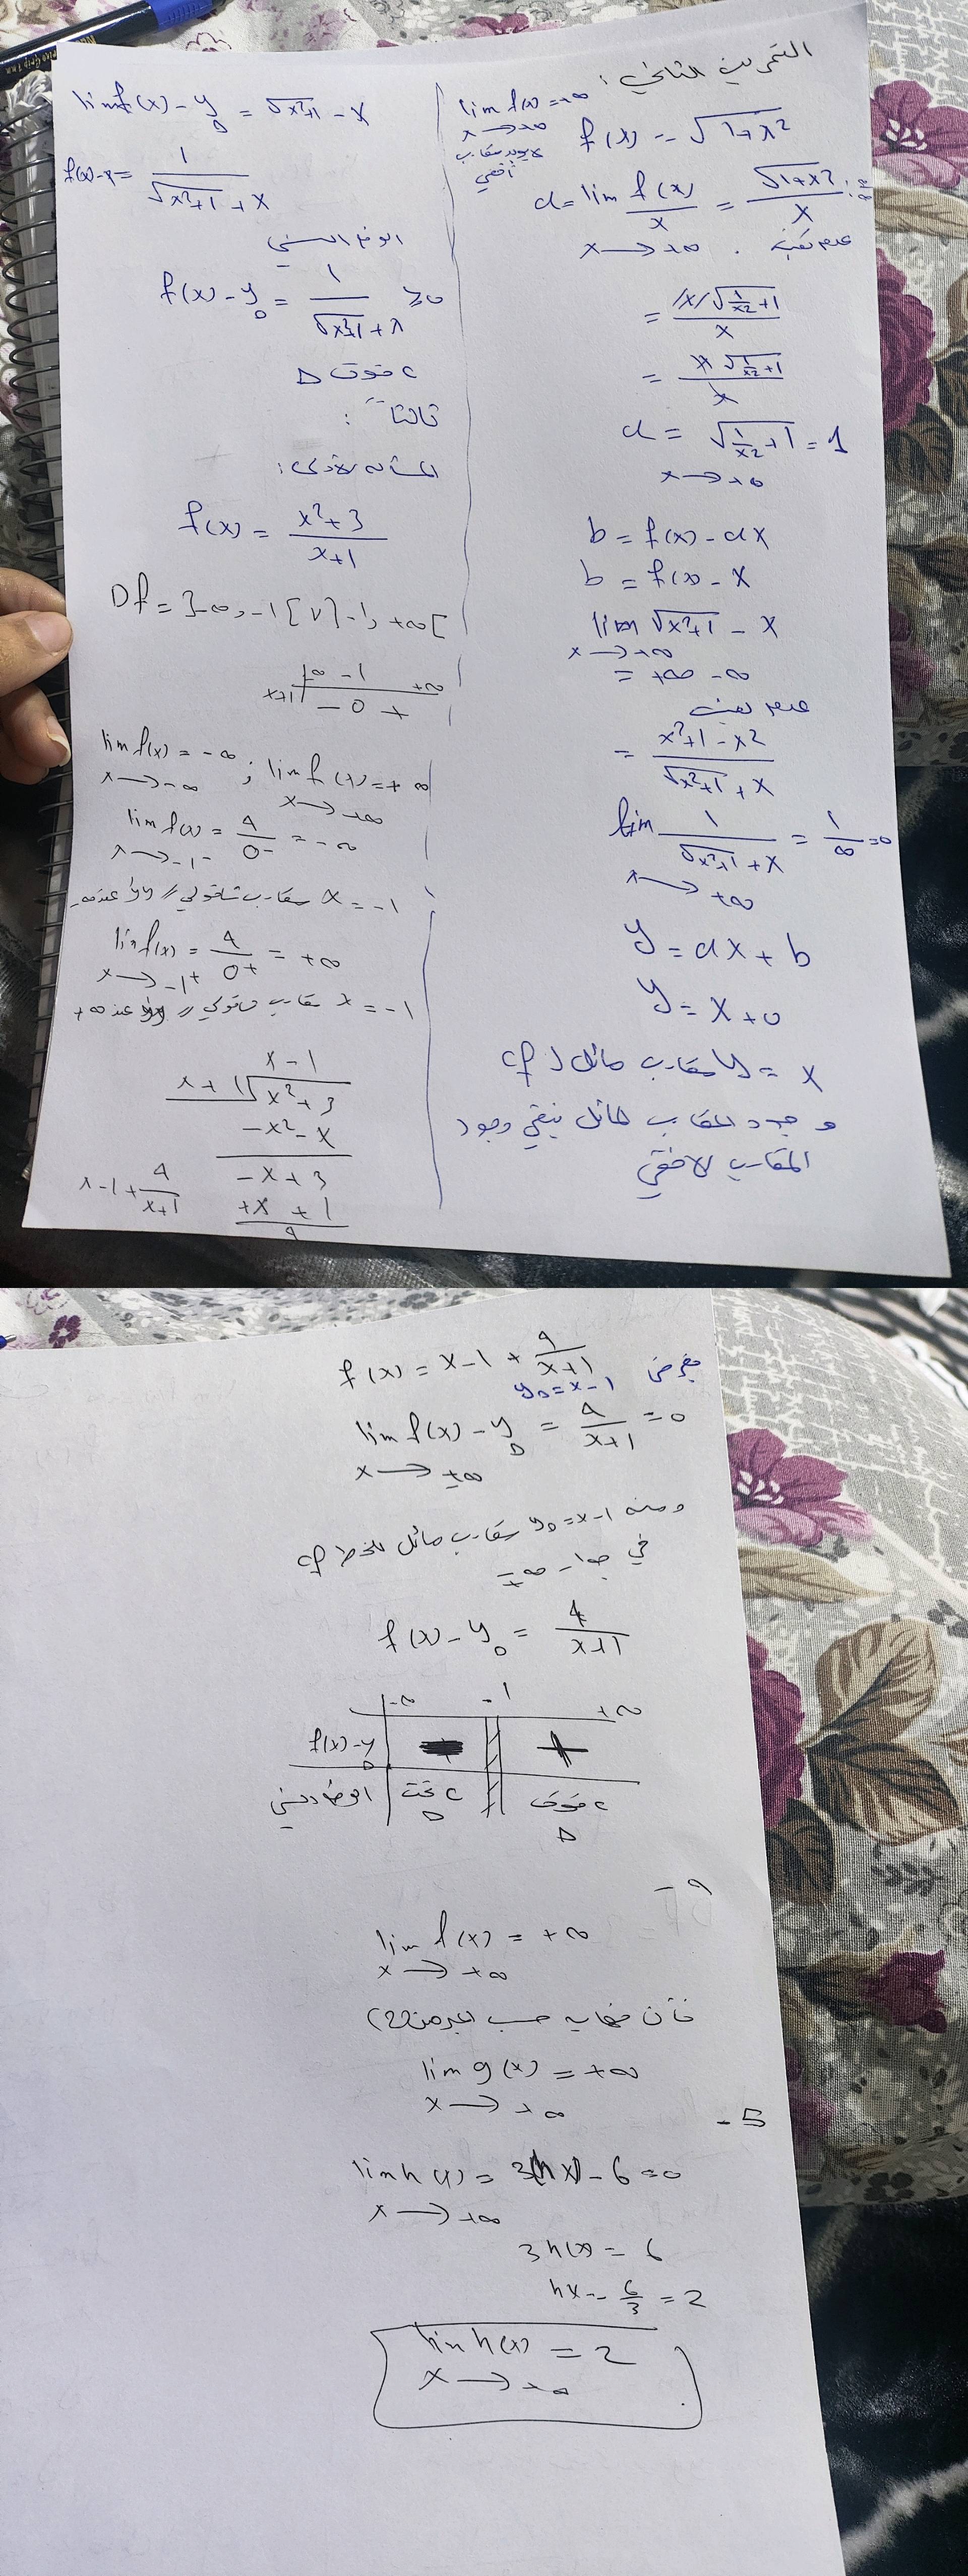 التمرين الثاني :
lim f(x) = +∞
x → +∞
لا يوجد مقارب أفقي
f(x) = √1+x²
a = lim f(x)/x = √1+x²/x : ∞/∞
x → +∞ . عدم تعيين
= |x|√(1/x² +1) / x
= x√(1/x² +1) / x
a = √(1/x² +1) = 1
x → +∞
b = f(x) - ax
b = f(x) - x
lim √x²+1 - x
x → +∞
= +∞ - ∞
عدم تعيين
= x²+1-x² / √x²+1 + x
lim 1 / √x²+1 + x = 1/∞ = 0
x → +∞
y = ax + b
y = x + 0
y = x مقارب مائل لـ cf
وجود المقارب المائل ينفي وجود
المقارب الافقي
lim f(x) - y_Δ = √x²+1 - x
f(x)-x = 1 / √x²+1 + x
الوضع النسبي
f(x) - y_Δ = 1 / √x²+1 + x ≥ 0
c فوق Δ
ثالثاً :
المسألة الأولى :
f(x) = x²+3 / x+1
Df = ]-∞, -1[ ∪ ]-1, +∞[
-∞ -1 +∞
x+1 - 0 +
lim f(x) = -∞ ; lim f(x) = +∞
x → -∞ x → +∞
lim f(x) = 4/0- = -∞
x → -1-
x = -1 مقارب شاقولي // yy' عند -∞
lim f(x) = 4/0+ = +∞
x → -1+
x = -1 مقارب شاقولي // yy' عند +∞
x - 1
x + 1 √ x² + 3
-x² - x
-x + 3
+x + 1
4
x-1+ 4/x+1
f(x) = x-1 + 4/x+1
بفرض y_Δ = x-1
lim f(x) - y_Δ = 4/x+1 = 0
x → ±∞
ومنه y_Δ = x-1 مقارب مائل للخط cf
في جوار ±∞
f(x) - y_Δ = 4/x+1
-∞ -1 +∞
f(x)-y_Δ - +
الوضع النسبي c تحت Δ c فوق Δ
lim f(x) = +∞
x → +∞
فأن حسب
lim g(x) = +∞
x → +∞
- 5
lim h(x) = 3(hx) - 6 = 0
x → +∞
3h(x) = 6
hx = 6/3 = 2
lim h(x) = 2
x → +∞